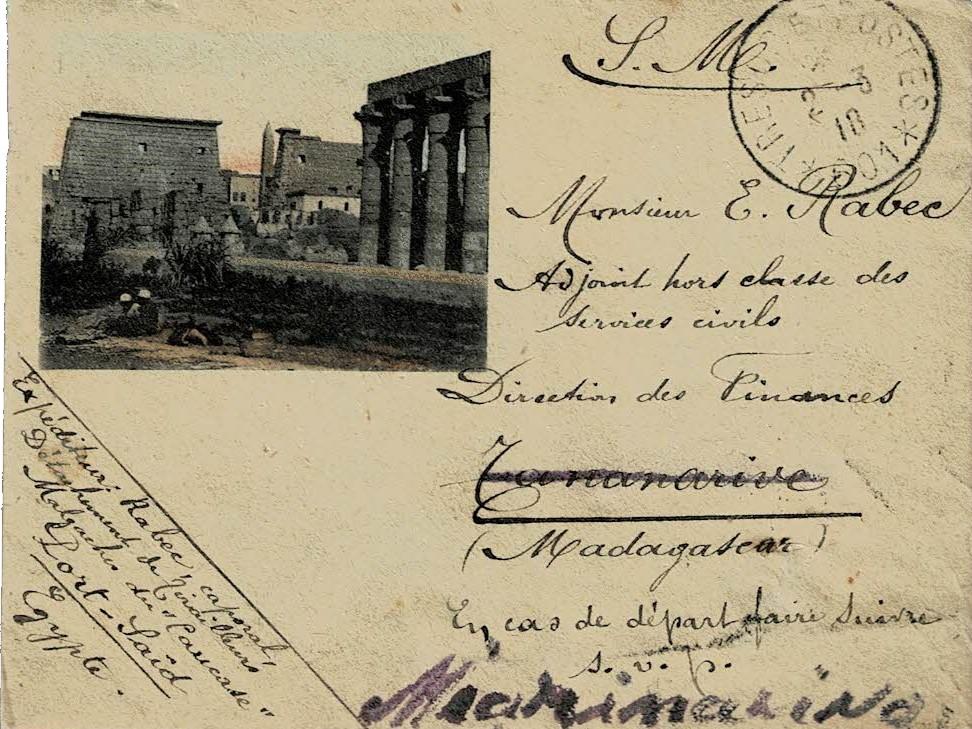 S. M.
TRESOR ET POSTES * 401 *
2 3
18
Monsieur E. Rabec
Adjoint hors classe des
services civils
Direction des Finances
Tananarive
(Madagascar)
En cas de départ faire suivre
s. v. p.
Expéditeur: Rabec, caporal,
Détachement de Tirailleurs
Malgaches du "Caucase"
Port-Saïd
Egypte.